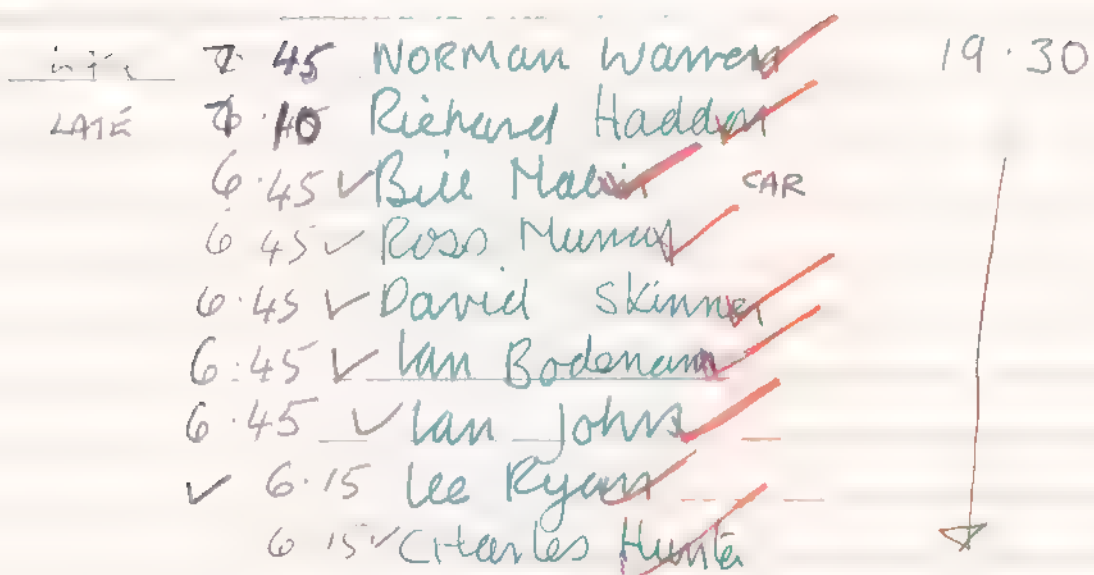 7 45 NORMAN Warren 19.30
LATE 7.10 Richard Haddon
6.45 ✓ Bill Malin CAR
6 45 ✓ Ross Murray
6.45 ✓ David Skinner
6.45 ✓ Ian Bodenam
6.45 ✓ Ian Johns
✓ 6.15 Lee Ryan
6 15 ✓ Charles Hunter